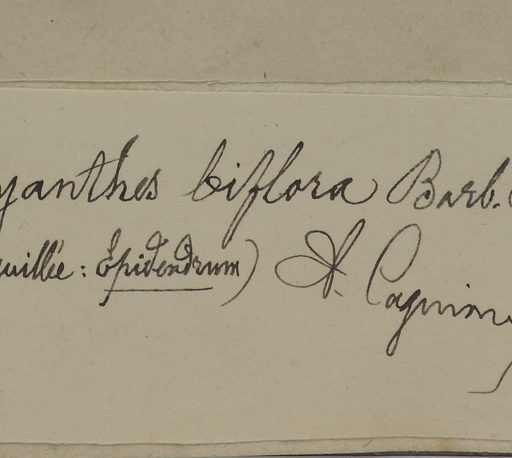 yanthes biflora Barb.
euillée: Epidendrum) A. Cogniau